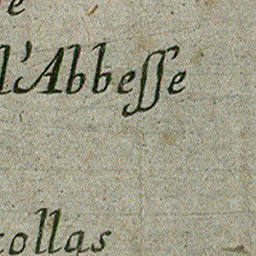 e
l'Abbesse
collas